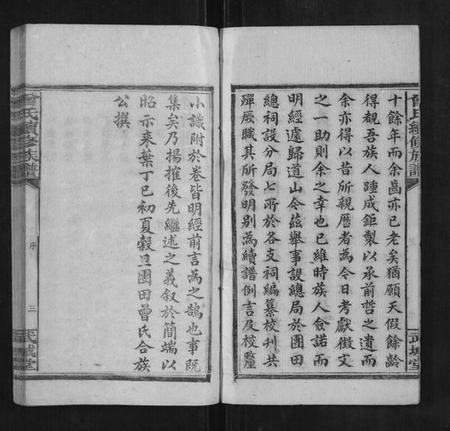 十餘年而余齒亦已老矣猶願天假餘齡
得覩吾族人踵成鉅製以承前哲之遺而
余亦得以昔所親歷者為今日考獻徵文
之一助則余之幸也已維時族人僉諾而
明經遽歸道山今茲舉事設總局於團田
總祠設分局七所於各支祠編纂校刊共
殫厥職其所發明別為續譜例言及校釐
小識附於卷皆明經前言為之鵠也事既
集矣乃揚搉後先繼述之義叙於簡端以
昭示來葉丁巳初夏穀旦團田曾氏合族
公撰
曾氏續修族譜
序
三
武城堂
曾氏續修族譜
武城堂